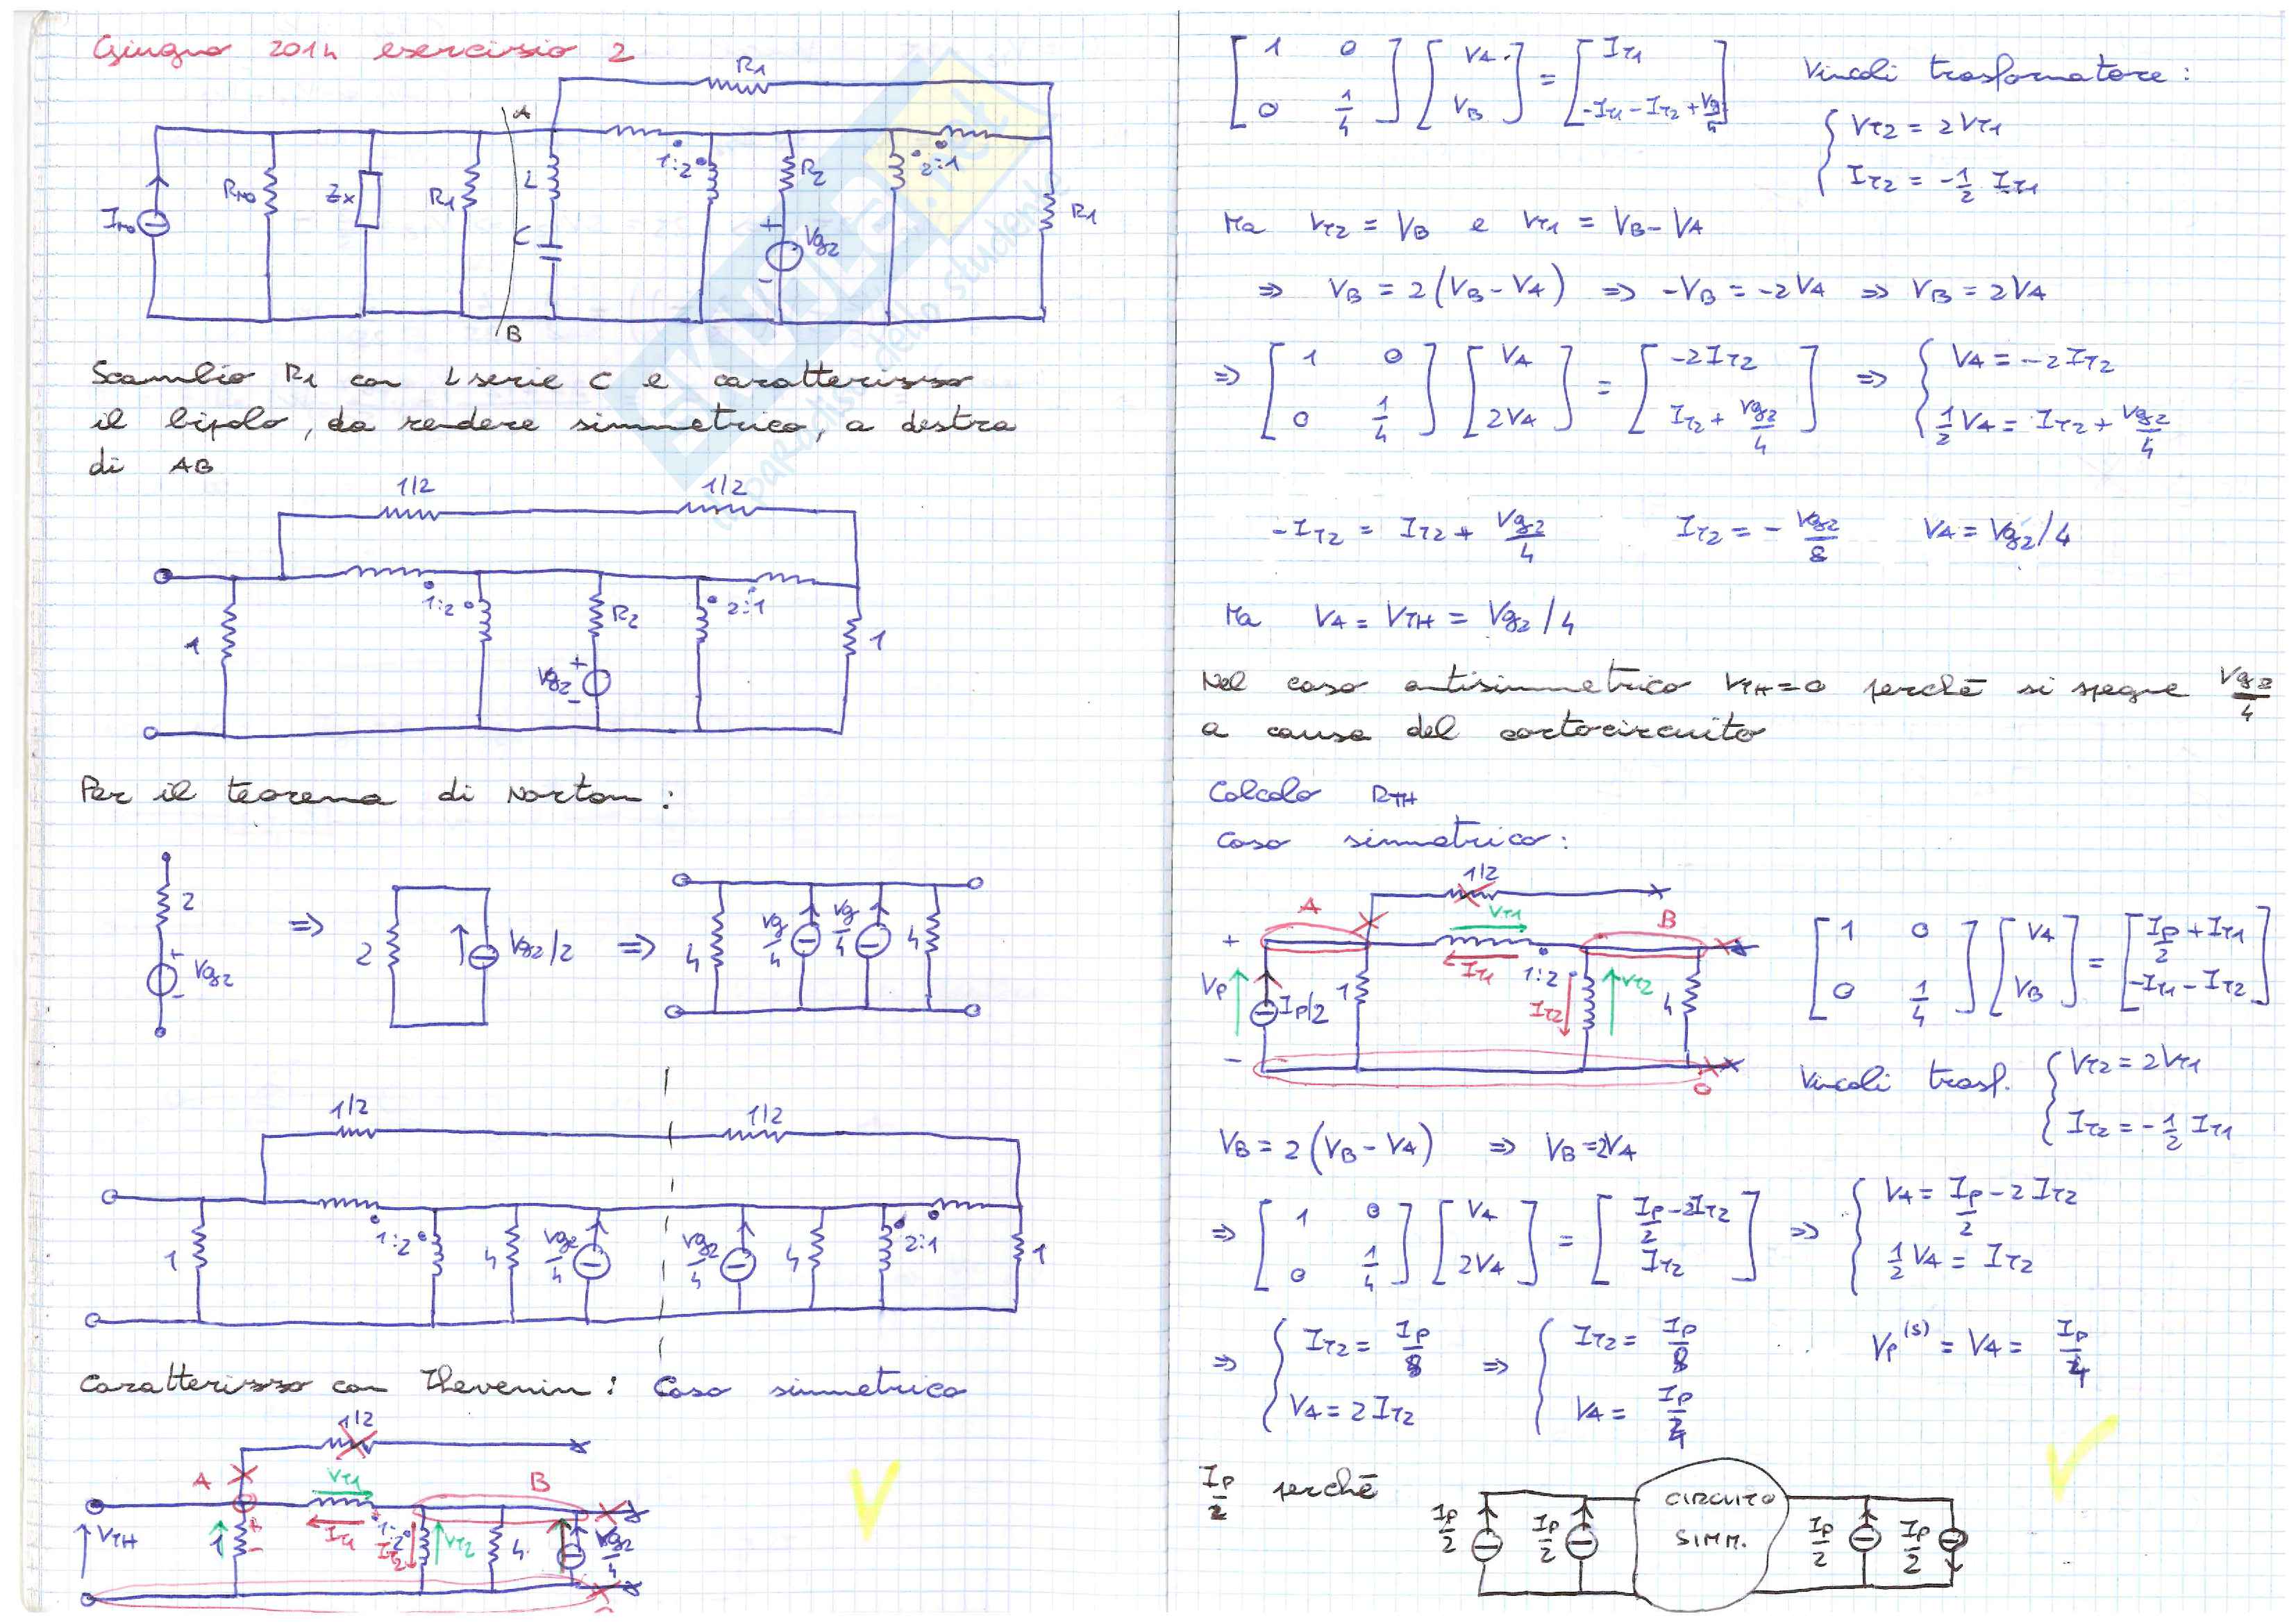 Giugno 2014 esercizio 2
R1
A
1:2
2:1
Ino
RNO
Zx
R1
L
C
R2
+
Vg2
-
R1
B
Scambio R1 con L serie C e caratterizzo
il bipolo, da rendere simmetrico, a destra
di AB
1/2 1/2
1:2
R2
2:1
1
+
Vg2
-
1
Per il teorema di Norton:
2
+
Vg2
-
⇒
2
Vg2/2
⇒
4
Vg/4
Vg/4
4
1/2 1/2
1
1:2
4
Vg2/4
Vg2/4
4
2:1
1
Caratterizzo con Thevenin: Caso simmetrico
1/2
A
VT1
B
VTH
1
+
-
IT1
1:2
IT2
VT2
4
Vg2/4
[1 0; 0 1/4] [VA; VB] = [IT1; -IT1-IT2+Vg/4]
Vincoli trasformatore:
{ VT2 = 2VT1
IT2 = -1/2 IT1
Ma VT2 = VB e VT1 = VB-VA
⇒ VB = 2(VB-VA) ⇒ -VB = -2VA ⇒ VB = 2VA
⇒ [1 0; 0 1/4] [VA; 2VA] = [-2IT2; IT2+Vg2/4] ⇒ { VA = -2IT2
1/2 VA = IT2+Vg2/4
-IT2 = IT2 + Vg2/4 IT2 = -Vg2/8 VA = Vg2/4
Ma VA = VTH = Vg2/4
Nel caso antisimmetrico VTH=0 perchè si spegne Vg2/4
a causa del cortocircuito
Calcolo RTH
Caso simmetrico:
1/2
A
VT1
B
+
Vp
-
Ip/2
1
IT1
1:2
IT2
VT2
4
0
[1 0; 0 1/4] [VA; VB] = [Ip/2+IT1; -IT1-IT2]
Vincoli trasf. { VT2 = 2VT1
IT2 = -1/2 IT1
VB = 2(VB-VA) ⇒ VB=2VA
⇒ [1 0; 0 1/4] [VA; 2VA] = [Ip/2-2IT2; IT2] ⇒ { VA = Ip/2-2IT2
1/2 VA = IT2
⇒ { IT2 = Ip/8 ⇒ { IT2 = Ip/8 Vp(s) = VA = Ip/4
VA = 2IT2 VA = Ip/4
Ip/2 perchè
Ip/2
Ip/2
CIRCUITO
SIMM.
Ip/2
Ip/2